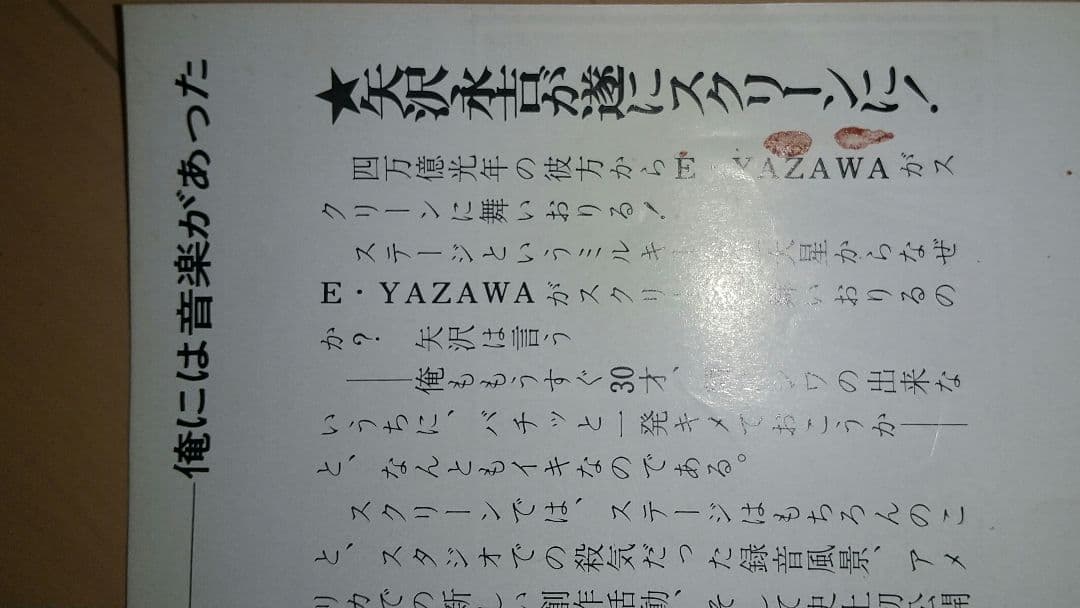 俺には音楽があった
★矢沢永吉が遂にスクリーンに!
四万億光年の彼方からE・YAZAWAがス
クリーンに舞いおりる!
ステージというミルキー 大星からなぜ
E・YAZAWAがスクリ 舞いおりるの
か? 矢沢は言う
——俺ももうすぐ30才、 シワの出来な
いうちに、バチッと一発キメておこうか——
と、なんともイキなのである。
スクリーンでは、ステージはもちろんのこ
と、スタジオでの殺気だった録音風景、アメ
リカでの新しい創作活動、そして史上初公開